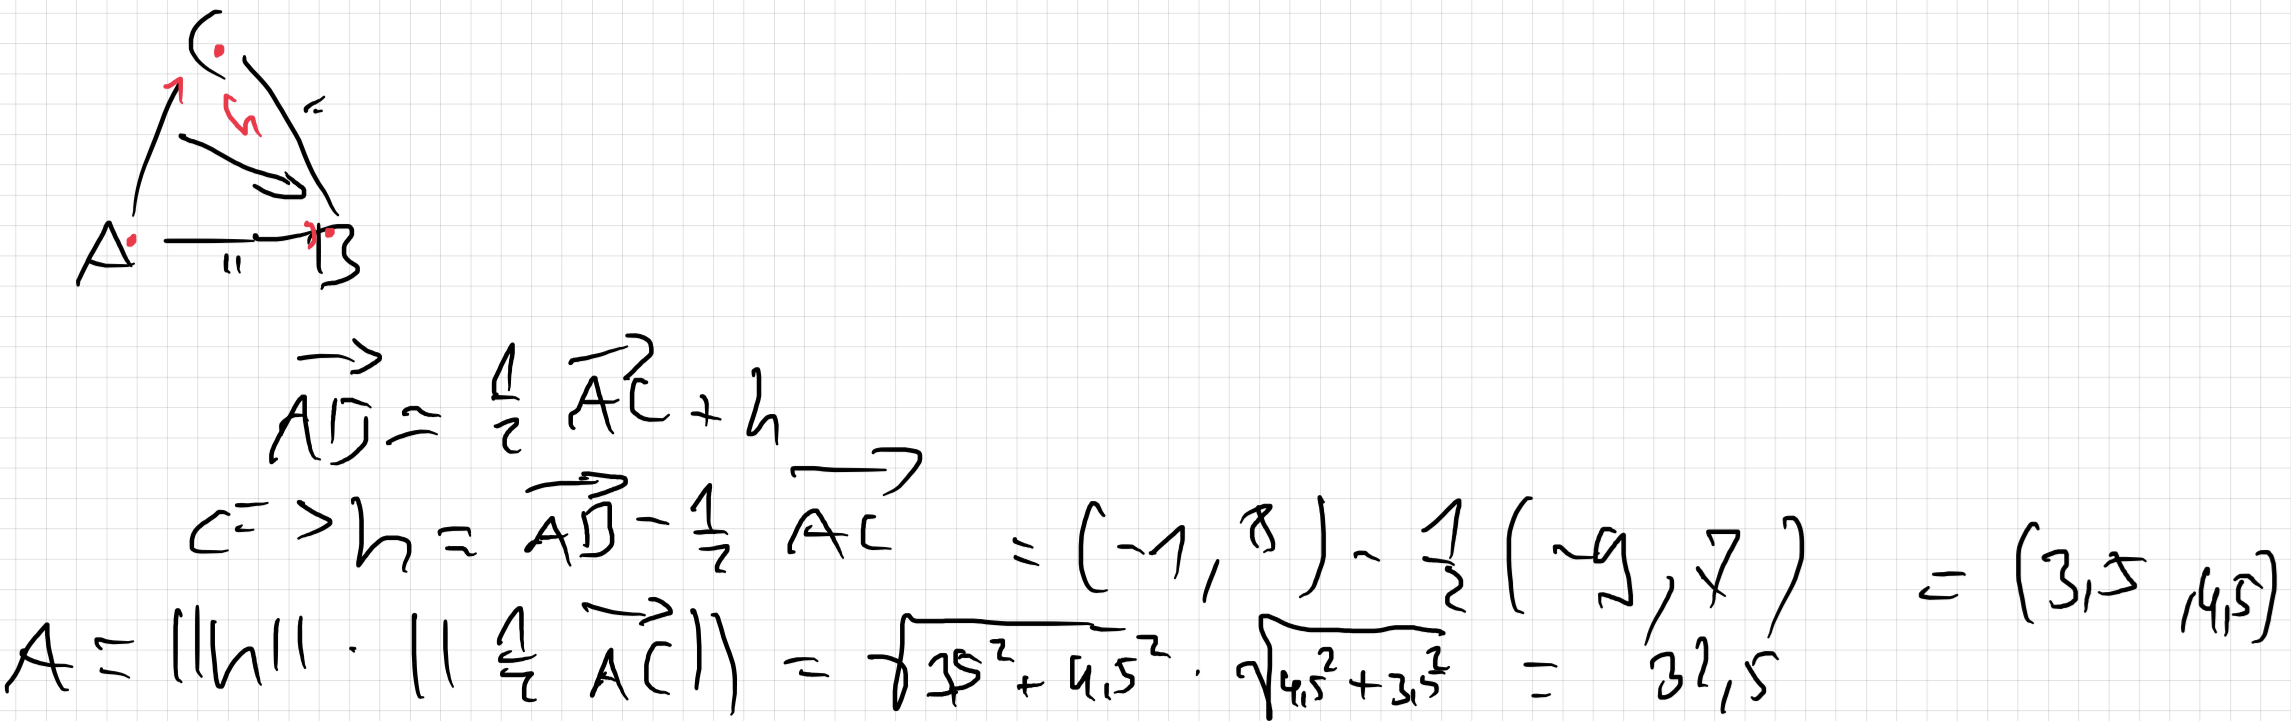 C
h
=
A
B
"
AB = 1/2 AC + h
<=> h = AB - 1/2 AC = (-1, 8) - 1/2 (-9, 7) = (3,5 , 4,5)
A = ||h|| · ||1/2 AC|| = √(3,5² + 4,5²) · √(4,5² + 3,5²) = 32,5